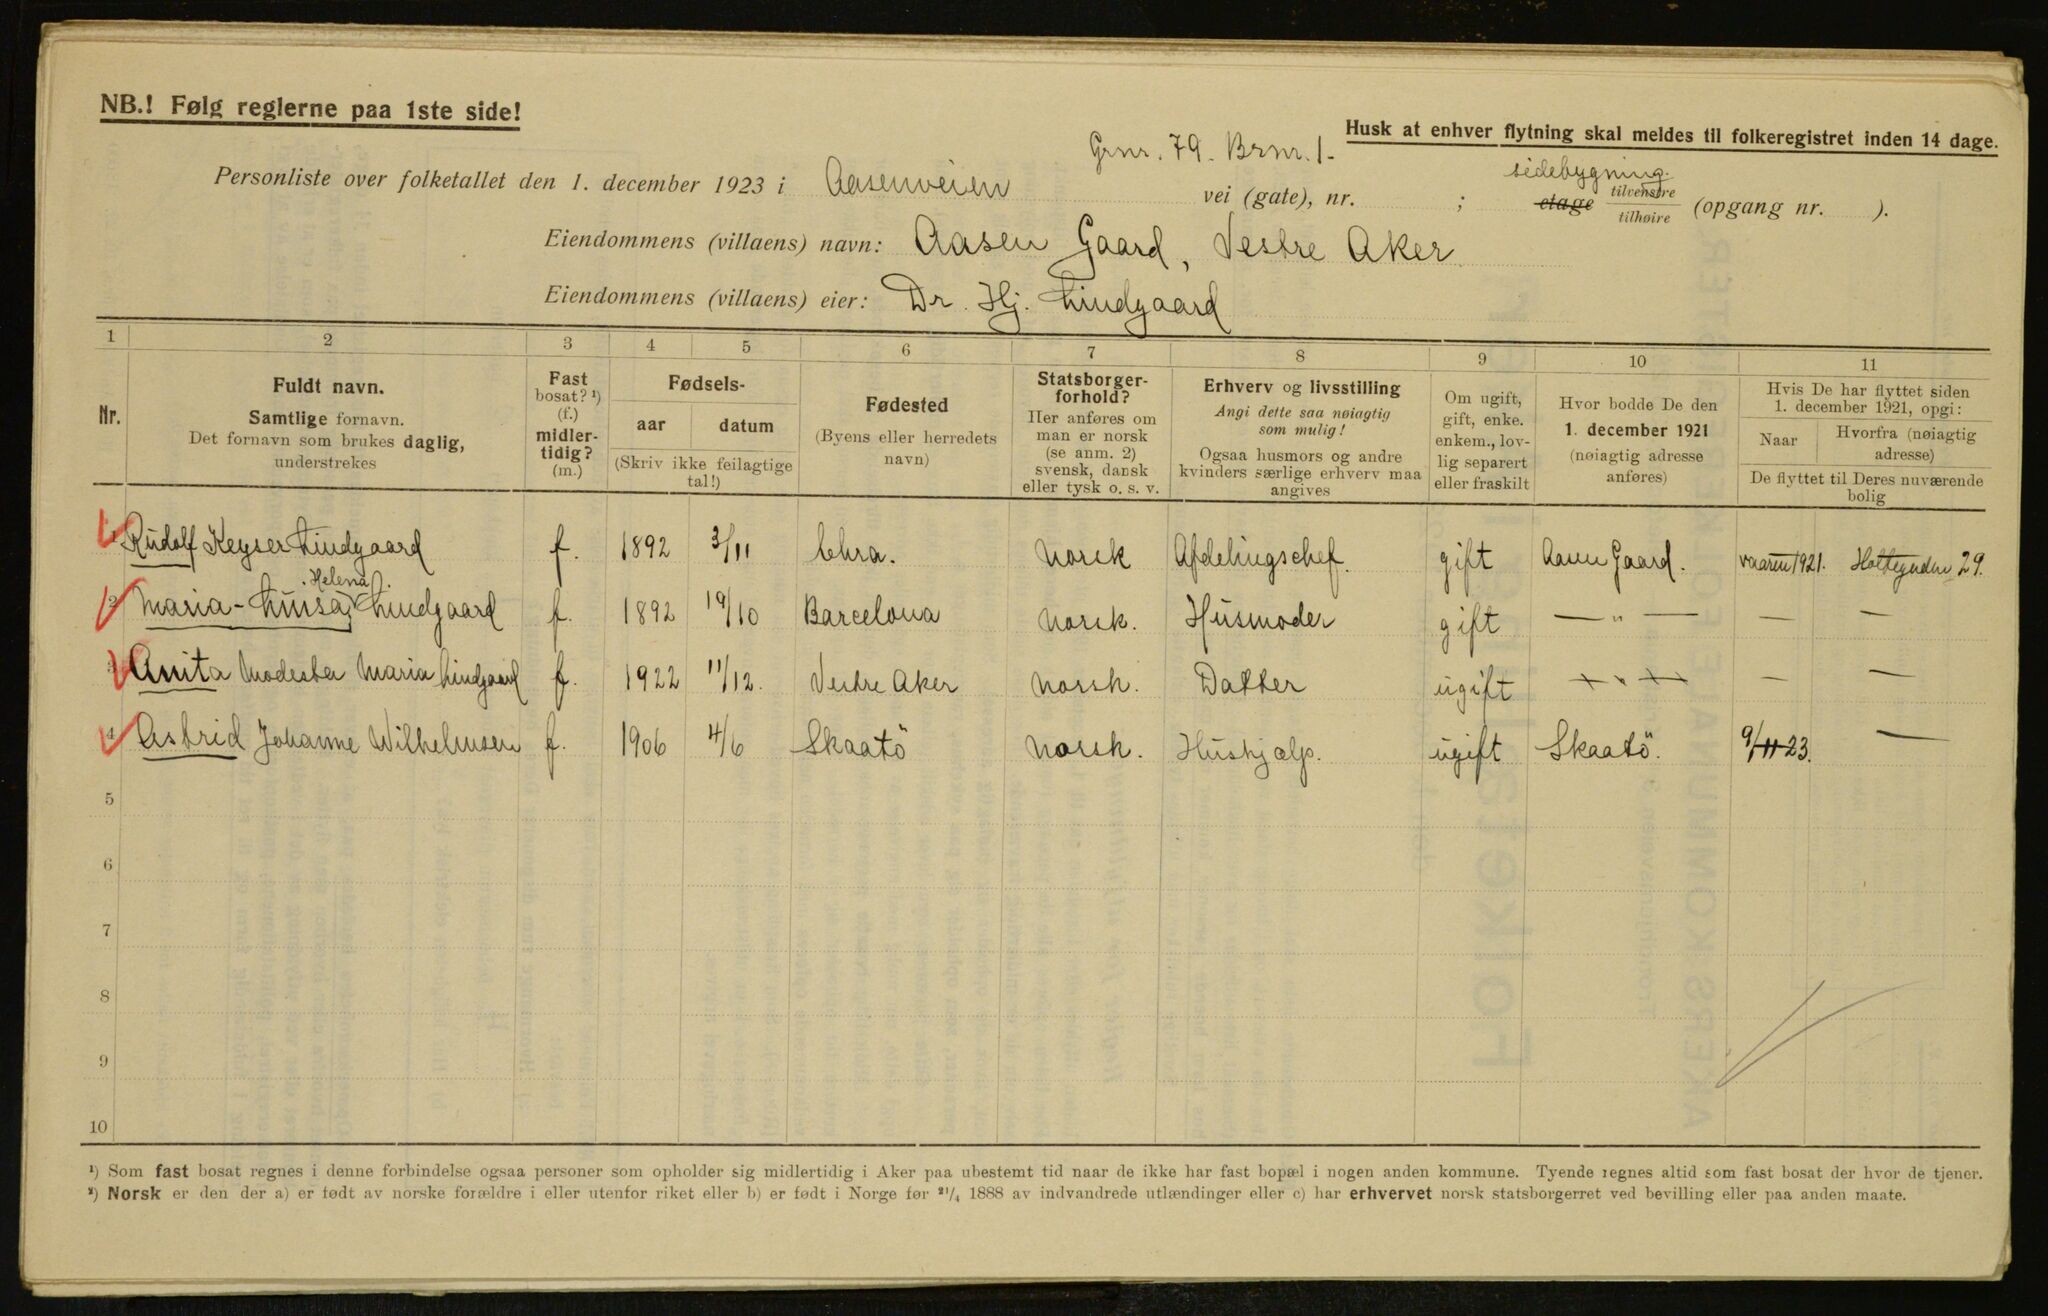 NB.! Følg reglerne paa 1ste side!
Husk at enhver flytning skal meldes til folkeregistret inden 14 dage.
Grnr. 79. Brnr. 1.
sidebygning.
Personliste over folketallet den 1. december 1923 i Aasenveien vei (gate), nr. ; etage tilvenstre tilhøire (opgang nr. ).
Eiendommens (villaens) navn: Aasen Gaard, Vestre Aker
Eiendommens (villaens) eier: Dr. Hj. Lindgaard
1 2 3 4 5 6 7 8 9 10 11
Nr.
Fuldt navn.
Samtlige fornavn.
Det fornavn som brukes daglig,
understrekes
Fast
bosat? ¹)
(f.)
midler-
tidig?
(m.)
Fødsels-
aar datum
(Skriv ikke feilagtige
tal!)
Fødested
(Byens eller herredets
navn)
Statsborger-
forhold?
Her anføres om
man er norsk
(se anm. 2)
svensk, dansk
eller tysk o. s. v.
Erhverv og livsstilling
Angi dette saa nøiagtig
som mulig!
Ogsaa husmors og andre
kvinders særlige erhverv maa
angives
Om ugift,
gift, enke.
enkem., lov-
lig separert
eller fraskilt
Hvor bodde De den
1. december 1921
(nøiagtig adresse
anføres)
Hvis De har flyttet siden
1. december 1921, opgi:
Naar
Hvorfra (nøiagtig
adresse)
De flyttet til Deres nuværende
bolig
1 Rudolf Keyser Lindgaard f. 1892 3/11 Chra. Norsk Afdelingschef. gift Aasen Gaard. vaaren 1921. 29.
Helena
2 Maria-Luisa Lindgaard f. 1892 19/10 Barcelona Norsk. Husmoder gift — „ — — —
3 Anita Modesta Maria Lindgaard f. 1922 11/12. Vestre Aker Norsk. Datter ugift — „ — — —
4 Astrid Johanne Wilhelmsen f. 1906 4/6 Skaatö Norsk. Hushjælp. ugift Skaatö. 9/11-23. —
5
6
7
8
9
10
¹) Som fast bosat regnes i denne forbindelse ogsaa personer som opholder sig midlertidig i Aker paa ubestemt tid naar de ikke har fast bopæl i nogen anden kommune. Tyende regnes altid som fast bosat der hvor de tjener.
²) Norsk er den der a) er født av norske forældre i eller utenfor riket eller b) er født i Norge før ²¹/₄ 1888 av indvandrede utlændinger eller c) har erhvervet norsk statsborgerret ved bevilling eller paa anden maate.